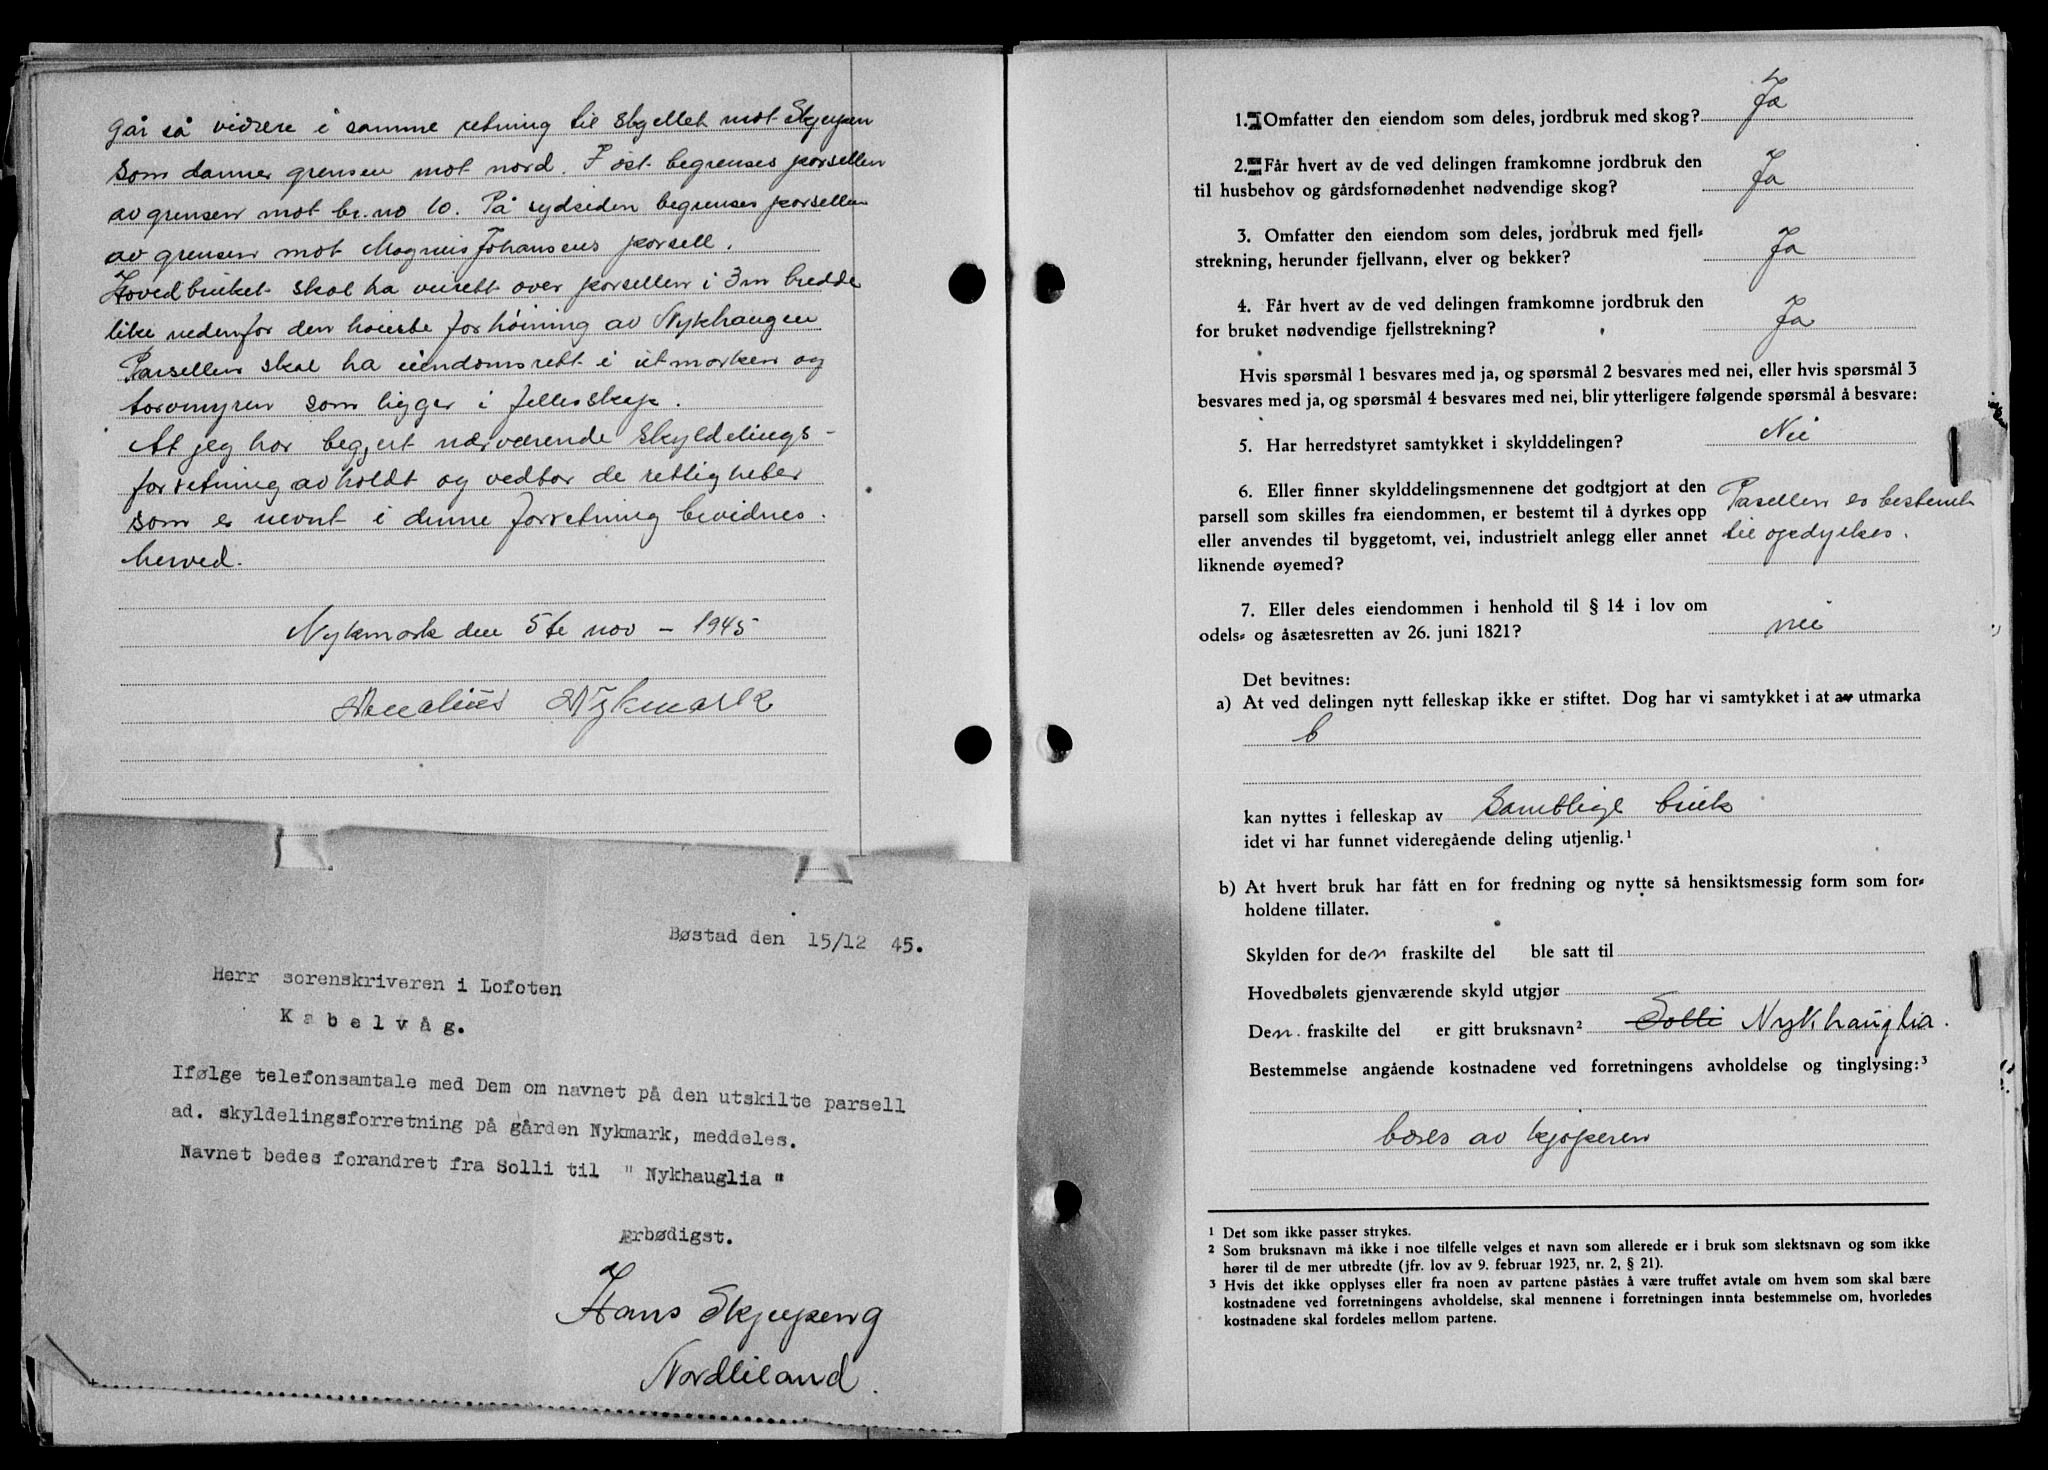 går så videre i samme retning til skyellet mot Skjerpen
som danner grensen mot nord. I øst begrenses parsellen
av grensen mot br.no 10. På sydsiden begrenses parsellen
av grensen mot Magnus Johansens parsell.
Hovedbruket skal ha veirett over parsellen i 3m bredde
like nedenfor den høieste forhøining av Nykhaugen
Parsellen skal ha eiendomsrett i utmarken og
torvmyren som ligger i fellesskap.
At jeg har begjert nærværende skyldelings-
forretning avholdt og vedtar de rettigheter
som er nevnt i denne forretning bevidnes
herved.
Nykmark den 5te nov - 1945
Nykmark
Bøstad den 15/12 45.
Herr sorenskriveren i Lofoten
Kabelvåg.
Ifølge telefonsamtale med Dem om navnet på den utskilte parsell
ad. skyldelingsforretning på gården Nykmark, meddeles.
Navnet bedes forandret fra Solli til " Nykhauglia "
Ærbødigst.
Hans Skjerpeng
Nordliland.
1. Omfatter den eiendom som deles, jordbruk med skog? Ja
2. Får hvert av de ved delingen framkomne jordbruk den
til husbehov og gårdsfornødenhet nødvendige skog? Ja
3. Omfatter den eiendom som deles, jordbruk med fjell-
strekning, herunder fjellvann, elver og bekker? Ja
4. Får hvert av de ved delingen framkomne jordbruk den
for bruket nødvendige fjellstrekning? Ja
Hvis spørsmål 1 besvares med ja, og spørsmål 2 besvares med nei, eller hvis spørsmål 3
besvares med ja, og spørsmål 4 besvares med nei, blir ytterligere følgende spørsmål å besvare:
5. Har herredstyret samtykket i skylddelingen? Nei
6. Eller finner skylddelingsmennene det godtgjort at den
parsell som skilles fra eiendommen, er bestemt til å dyrkes opp
eller anvendes til byggetomt, vei, industrielt anlegg eller annet
liknende øyemed?
Pasellen er bestemt
til opdyrkes.
7. Eller deles eiendommen i henhold til § 14 i lov om
odels- og åsætesretten av 26. juni 1821? nei
Det bevitnes:
a) At ved delingen nytt felleskap ikke er stiftet. Dog har vi samtykket i at av utmarka
b
kan nyttes i felleskap av samtlige bruk
idet vi har funnet videregående deling utjenlig.¹
b) At hvert bruk har fått en for fredning og nytte så hensiktsmessig form som for-
holdene tillater.
Skylden for den fraskilte del ble satt til
Hovedbølets gjenværende skyld utgjør
Den fraskilte del er gitt bruksnavn² Solli Nykhauglia.
Bestemmelse angående kostnadene ved forretningens avholdelse og tinglysing:³
bæres av kjøperen
¹ Det som ikke passer strykes.
² Som bruksnavn må ikke i noe tilfelle velges et navn som allerede er i bruk som slektsnavn og som ikke
hører til de mer utbredte (jfr. lov av 9. februar 1923, nr. 2, § 21).
³ Hvis det ikke opplyses eller fra noen av partene påståes å være truffet avtale om hvem som skal bære
kostnadene ved forretningens avholdelse, skal mennene i forretningen innta bestemmelse om, hvorledes
kostnadene skal fordeles mellom partene.